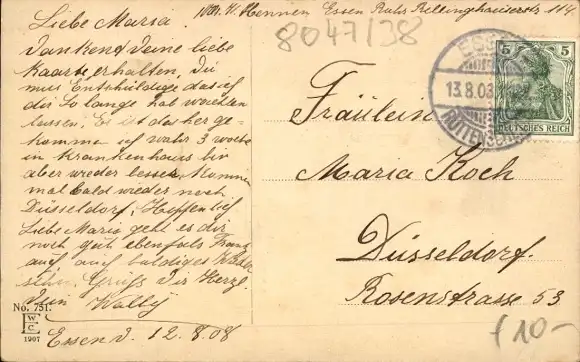 Liebe Maria.
Wall. H. Hennen Essen Ruhr Rellinghauserstr 114
8047/38
Dankend deine liebe
Kaarte erhalten, Du
mus Entschuldige das ich
dir So lange hab warchten
lassen. Es ist daher ge-
kommen ich wahr 3 woche
in Krankenhaus bin
aber wieder besser. Komme
mal bald wieder nach
Düsseldorf, Hoffentlich
Liebe Maria geht es dir
noch gut ebenfals Franz
auf auf baldiges Wieder
sehn. Gruß Dir Herzl.
dein Wally
Essen d. 12.8.08
No. 751.
W C
1907
ESSEN
13.8.08
RÜTTENSCHEID
5 5
DEUTSCHES REICH
Fräulein
Maria Koch
Düsseldorf.
Rosenstrasse 53
f10-